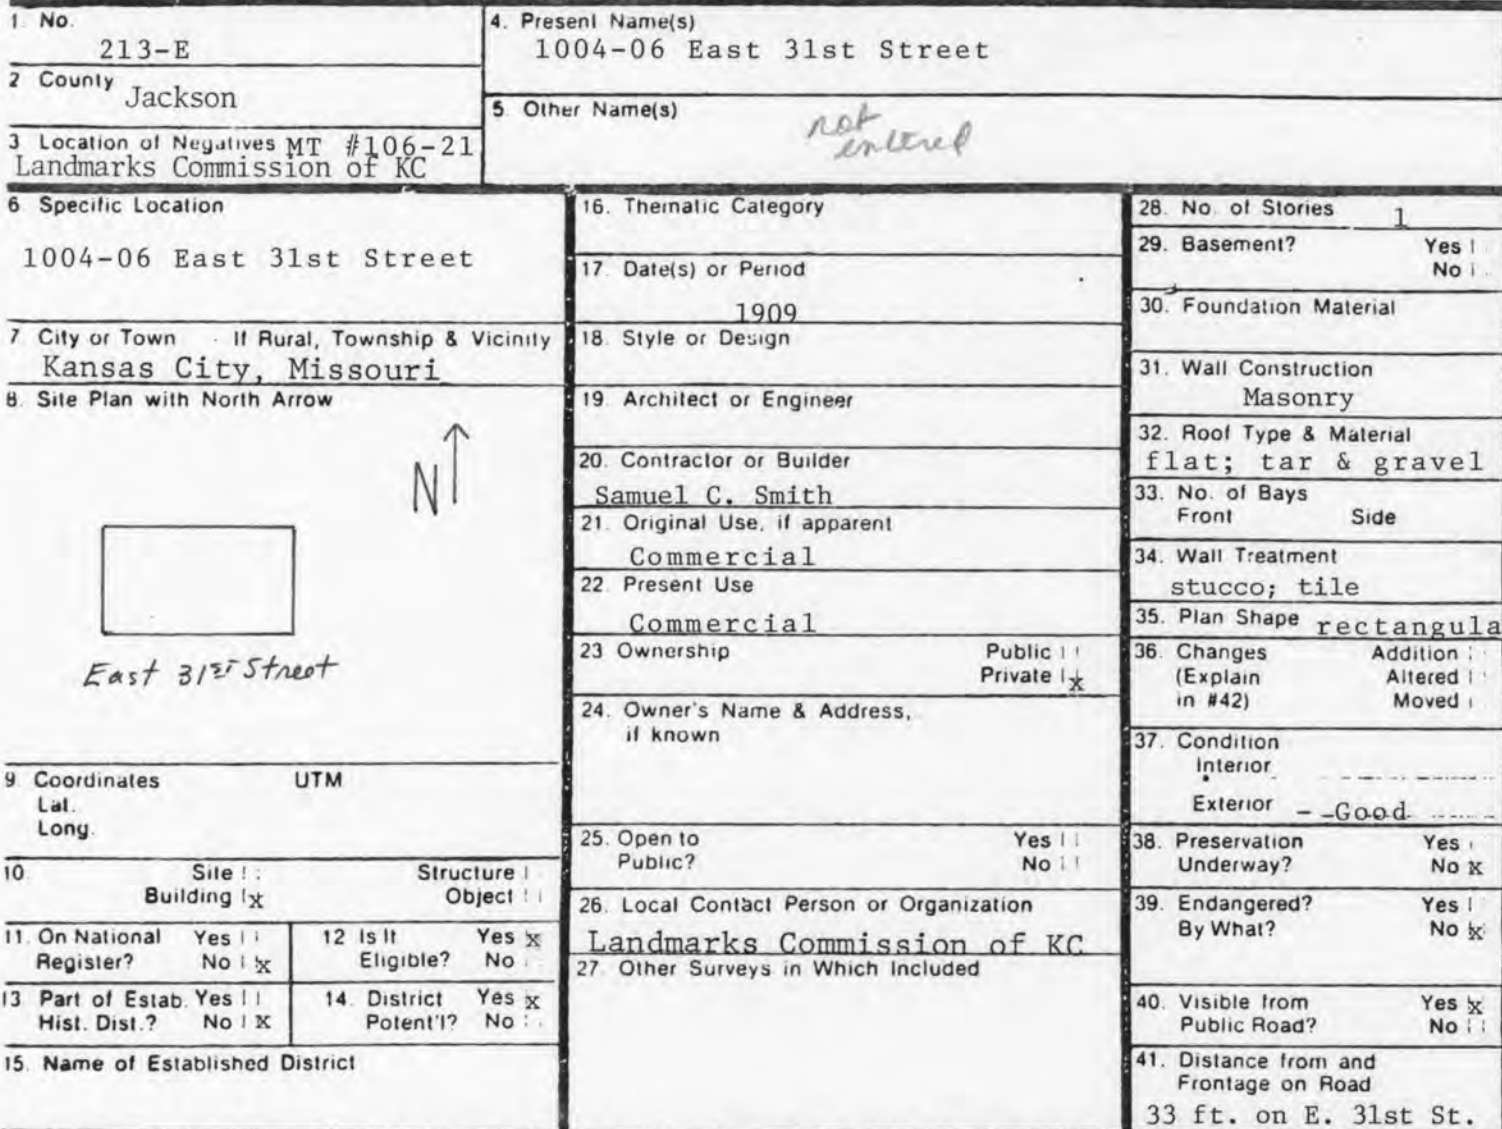 1. No.
213-E
2 County Jackson
3 Location of Negatives MT #106-21
Landmarks Commission of KC
4. Present Name(s)
1004-06 East 31st Street
5. Other Name(s)
not
entered
6. Specific Location
1004-06 East 31st Street
7. City or Town If Rural, Township & Vicinity
Kansas City, Missouri
8. Site Plan with North Arrow
N
East 31ST Street
9. Coordinates UTM
Lat.
Long.
10. Site Structure
Building x Object
11. On National Yes
Register? No x
12 Is It Yes x
Eligible? No
13 Part of Estab. Yes
Hist. Dist.? No X
14. District Yes x
Potent'l? No
15. Name of Established District
16. Thematic Category
17. Date(s) or Period
1909
18. Style or Design
19. Architect or Engineer
20. Contractor or Builder
Samuel C. Smith
21. Original Use, if apparent
Commercial
22. Present Use
Commercial
23 Ownership Public
Private x
24. Owner's Name & Address,
if known
25. Open to Yes
Public? No
26. Local Contact Person or Organization
Landmarks Commission of KC
27. Other Surveys in Which Included
28. No. of Stories 1
29. Basement? Yes
No
30. Foundation Material
31. Wall Construction
Masonry
32. Roof Type & Material
flat; tar & gravel
33. No. of Bays
Front Side
34. Wall Treatment
stucco; tile
35. Plan Shape rectangula
36. Changes Addition
(Explain Altered
in #42) Moved
37. Condition
Interior
Exterior Good
38. Preservation Yes
Underway? No x
39. Endangered? Yes
By What? No x
40. Visible from Yes x
Public Road? No
41. Distance from and
Frontage on Road
33 ft. on E. 31st St.